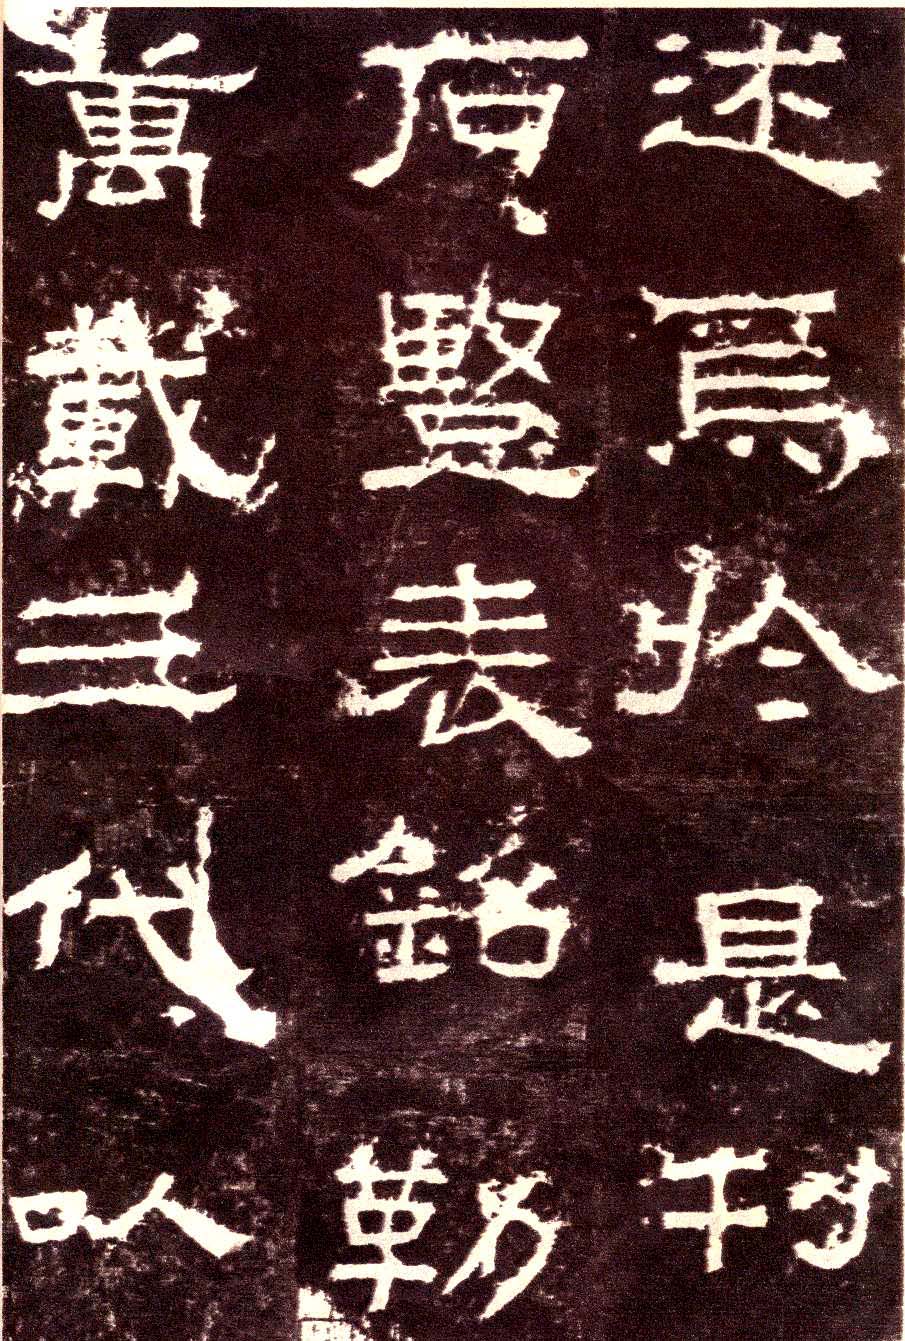 述焉於是刊
石豎表銘勒
萬載三代以